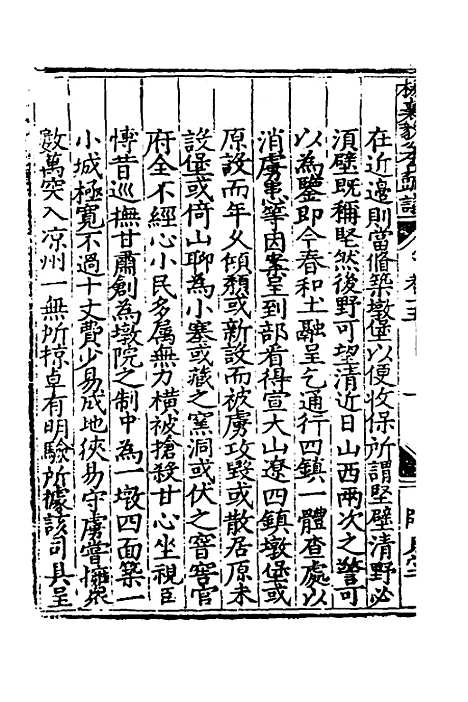 在近邊則當脩築墩堡以便收保所謂堅壁清野必
須壁既稱堅然後野可望清近日山西兩次之警可
以為鑒即今春和土融呈乞通行四鎮一體查處以
消虜患等因案呈到部看得宣大山遼四鎮墩堡或
原設而年久傾頹或新設而被虜攻毀或散居原未
設堡或倚山聊為小寨或藏之窯洞或伏之窨窖官
府全不經心小民多属無力橫被搶殺甘心坐視臣
博昔巡撫甘肅創為墩院之制中為一墩四面築一
小城極寬不過十丈費少易成地俠易守虜嘗擁衆
數萬突入凉州一無所掠卓有明驗所據該司具呈